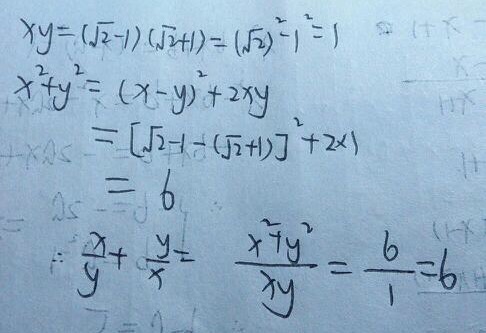 xy=(√2-1)(√2+1)=(√2)²-1²=1
x²+y²=(x-y)²+2xy
=[√2-1-(√2+1)]²+2×1
=6
∴ x/y + y/x = (x²+y²)/(xy) = 6/1 = 6